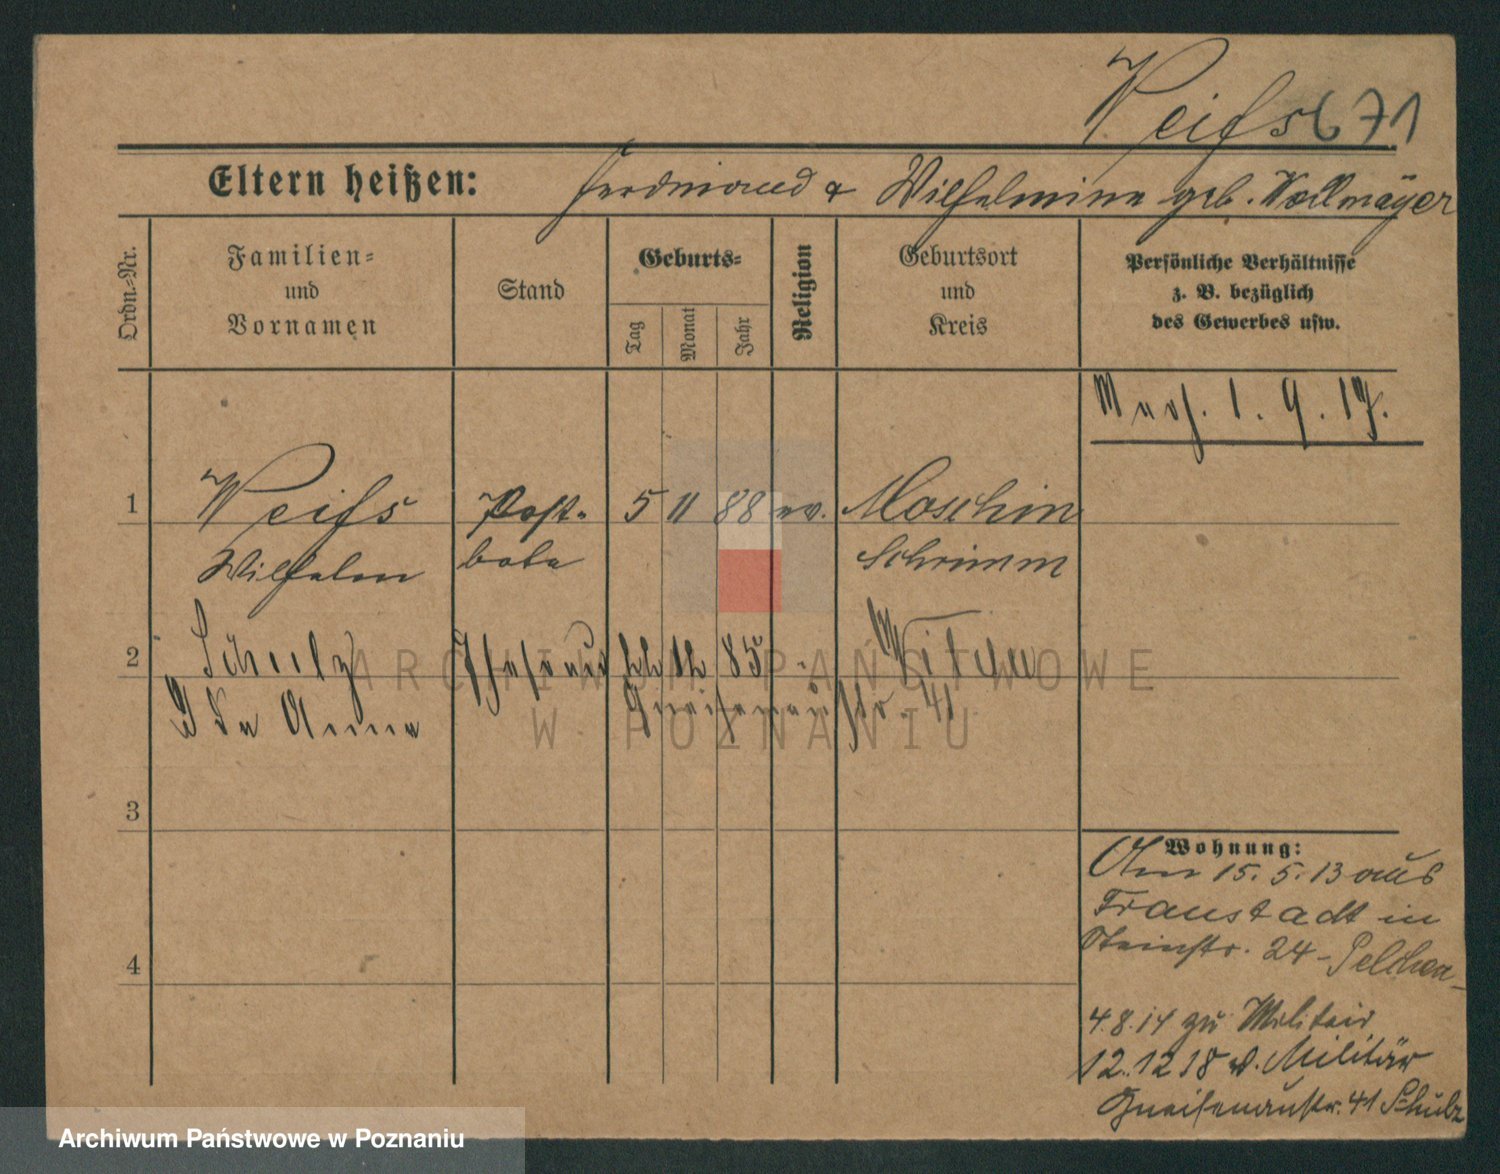 Weiſs 671
Eltern heißen: Ferdinand & Wilhelmine geb. Wollmäyer
Ordn.-Nr.
Familien-
und
Vornamen
Stand
Geburts-
Tag
Monat
Jahr
Religion
Geburtsort
und
Kreis
Persönliche Verhältnisse
z. B. bezüglich
des Gewerbes usw.
1. 9. 17.
1 Weiſs Post- 5 11 88 ev. Moschin
Wilhelm bote Schrimm
2 Schulz Ehefrau 12 85
Ida Anna Gneisenaustr. 41
3
4
Wohnung:
Am 15. 5. 13 aus
Fraustadt in
Steinstr. 24 -
4.8.14 zu Militair
12.12 18 v. Militär
Gneisenaustr. 41 Schulz
ARCHIWUM PAŃSTWOWE
W POZNANIU
Archiwum Państwowe w Poznaniu